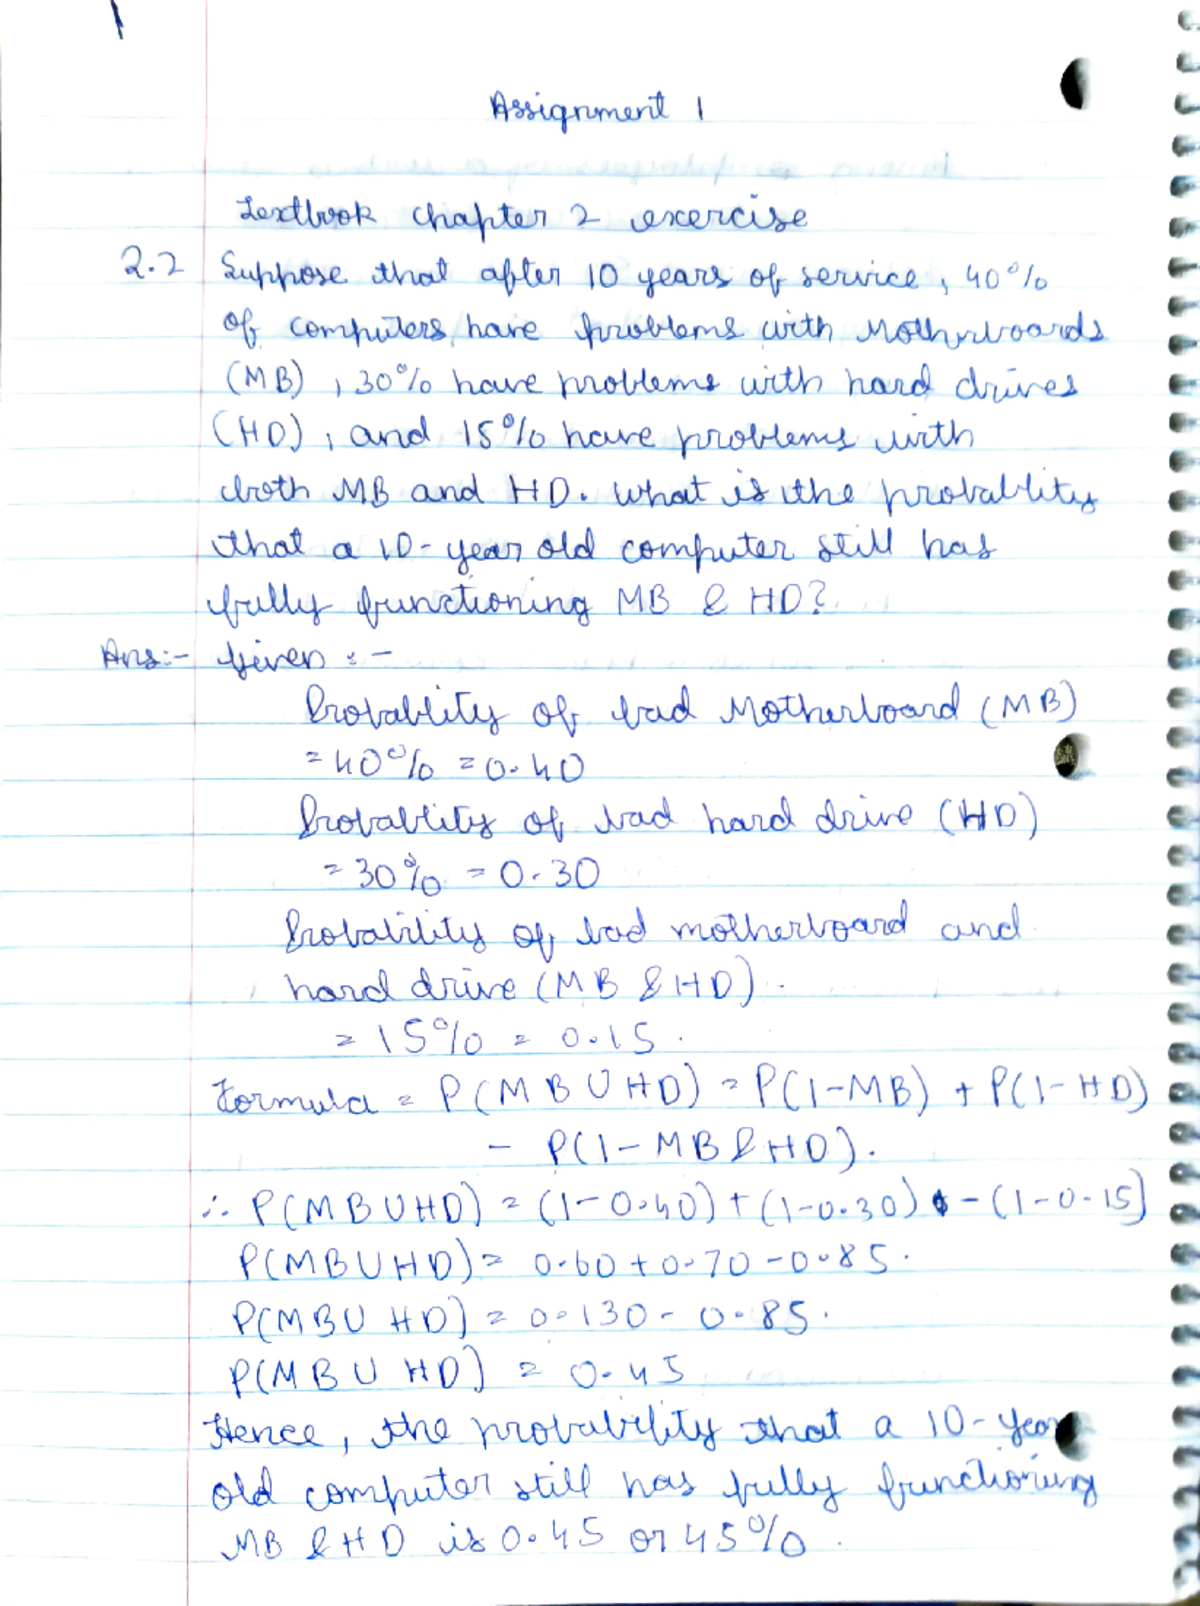 Assignment 1
Textbook chapter 2 exercise
2.2 Suppose that after 10 years of service, 40%
of computers have problems with Motherboards
(MB), 30% have problems with hard drives
(HD), and 15% have problems with
both MB and HD. What is the probablity
that a 10-year old computer still has
fully functioning MB & HD?
Ans:- Given :-
Probablity of bad Motherboard (MB)
= 40% = 0.40
Probablity of bad hard drive (HD)
= 30% = 0.30
Probability of bad motherboard and
hard drive (MB & HD).
= 15% = 0.15.
Formula = P(MB U HD) = P(1-MB) + P(1-HD)
- P(1-MB & HD).
∴ P(MBUHD) = (1-0.40) + (1-0.30) - (1-0.15)
P(MBUHD) = 0.60 + 0.70 - 0.85.
P(MBU HD) = 0.130 - 0.85.
P(MBU HD) = 0.45
Hence, the probability that a 10-year
old computer still has fully functioning
MB & HD is 0.45 or 45%.